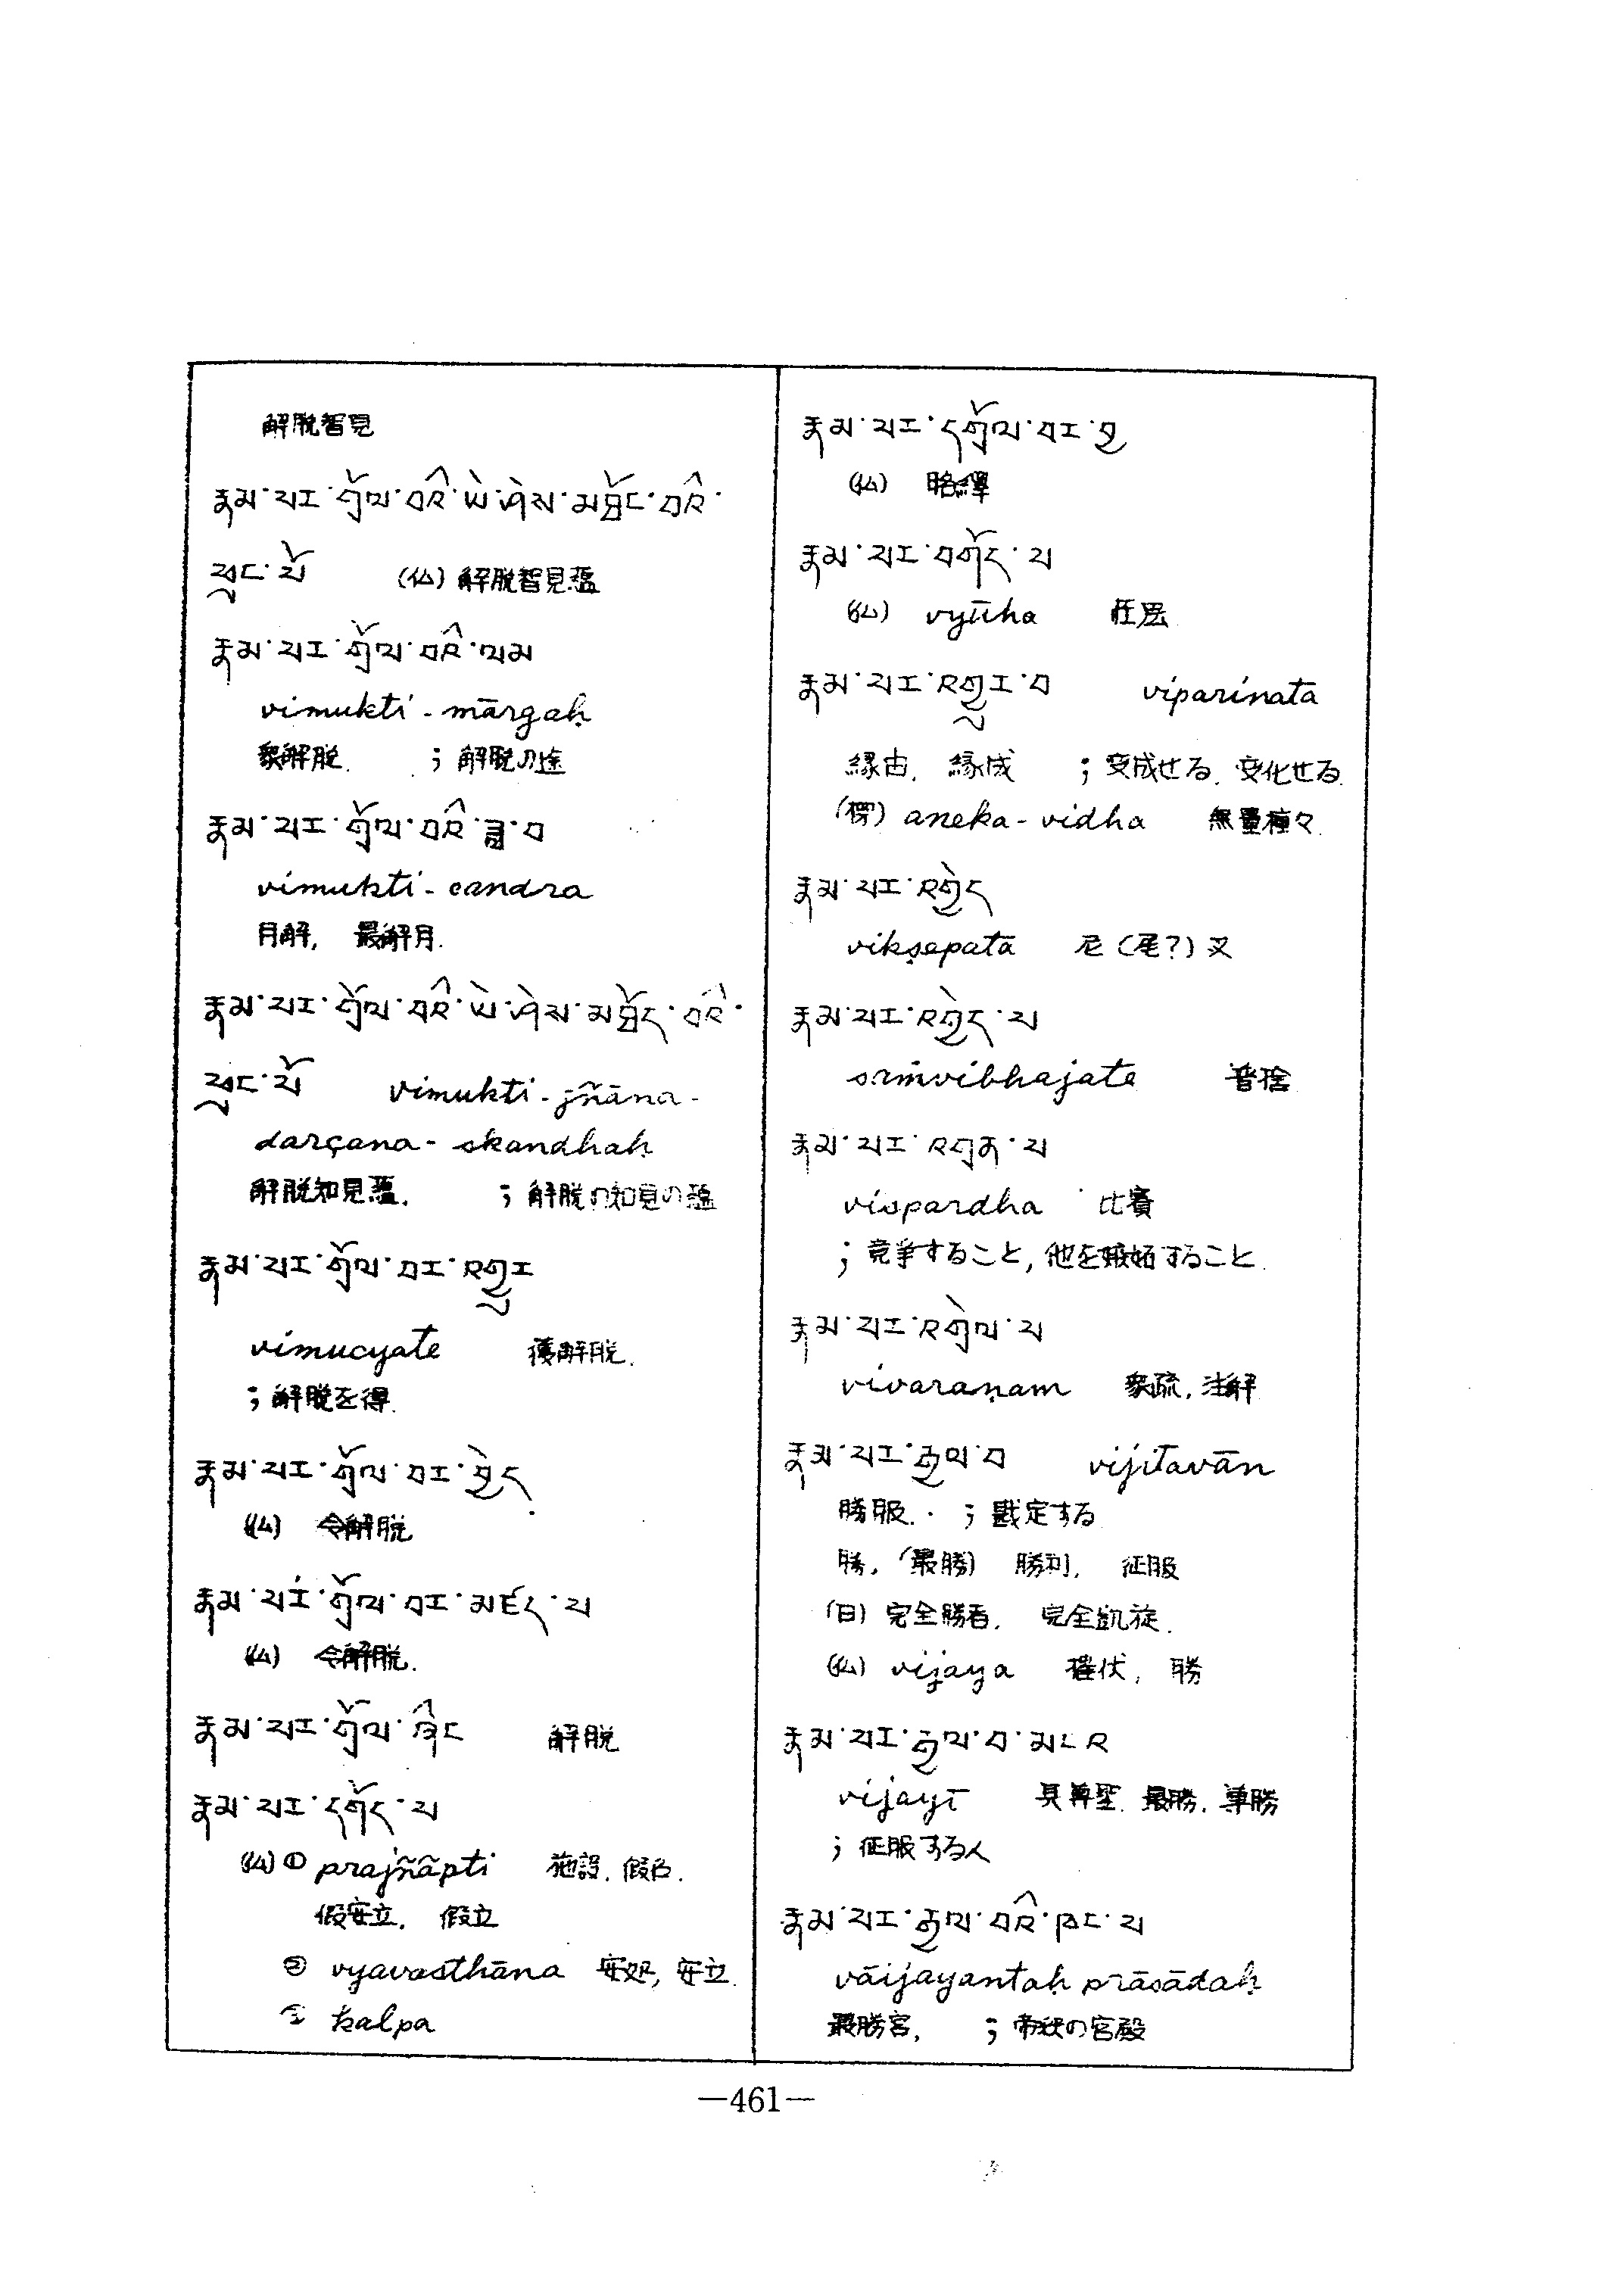 解脱智見
རྣམ་པར་གྲོལ་བའི་ཡེ་ཤེས་མཐོང་བའི་
ཕུང་པོ (仏) 解脱智見蘊
རྣམ་པར་གྲོལ་བའི་ལམ
vimukti - mārgaḥ
衆解脱. ; 解脱の途
རྣམ་པར་གྲོལ་བའི་ཟླ་བ
vimukti - candra
月解, 最解月.
རྣམ་པར་གྲོལ་བའི་ཡེ་ཤེས་མཐོང་བའི་
ཕུང་པོ vimukti - jñāna -
darçana - skandhaḥ
解脱知見蘊. ; 解脱の知見の蘊
རྣམ་པར་གྲོལ་བར་འགྱུར
vimucyate 獲解脱.
; 解脱を得
རྣམ་པར་གྲོལ་བར་བྱེད
(仏) 令解脱
རྣམ་པར་གྲོལ་བར་མཛད་པ
(仏) 令解脱.
རྣམ་པར་གྲོལ་ཞིང 解脱
རྣམ་པར་དགོད་པ
(仏) ① prajñāpti 施設. 假名.
假安立. 假立
② vyavasthāna 安処, 安立.
③ kalpa
རྣམ་པར་དགྲོལ་བར་བྱ
(仏) 略繹
རྣམ་པར་བགོད་པ
(仏) vyūha 荘厳
རྣམ་པར་འགྱུར་བ viparinata
縁由. 縁成 ; 変成せる. 変化せる.
(楞) aneka - vidha 無量種々.
རྣམ་པར་འགྱེད
vikṣepatā 尼 (尾?) 叉
རྣམ་པར་འགྱེད་པ
saṁvibhajate 普捨
རྣམ་པར་འགྲན་པ
vispardha 比賽
; 競争すること, 他を嫉妬すること.
རྣམ་པར་འགྲེལ་པ
vivaraṇam 衆疏. 注解
རྣམ་པར་རྒྱལ་བ vijitavān
勝服. ; 戡定する
勝. (最勝) 勝利. 征服
(日) 完全勝者. 完全凱旋.
(仏) vijaya 摧伏, 勝
རྣམ་པར་རྒྱལ་བ་མངའ
vijayī 具尊聖. 最勝. 尊勝
; 征服する人
རྣམ་པར་རྒྱལ་བའི་ཁང་པ
vāijayantaḥ prāsādaḥ
最勝宮, ; 帝釈の宮殿
—461—